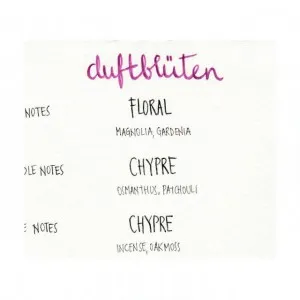 duftblüten
NOTES FLORAL
MAGNOLIA, GARDENIA
LE NOTES CHYPRE
OSMANTHUS, PATCHOULI
E NOTES CHYPRE
INCENSE, OAKMOSS